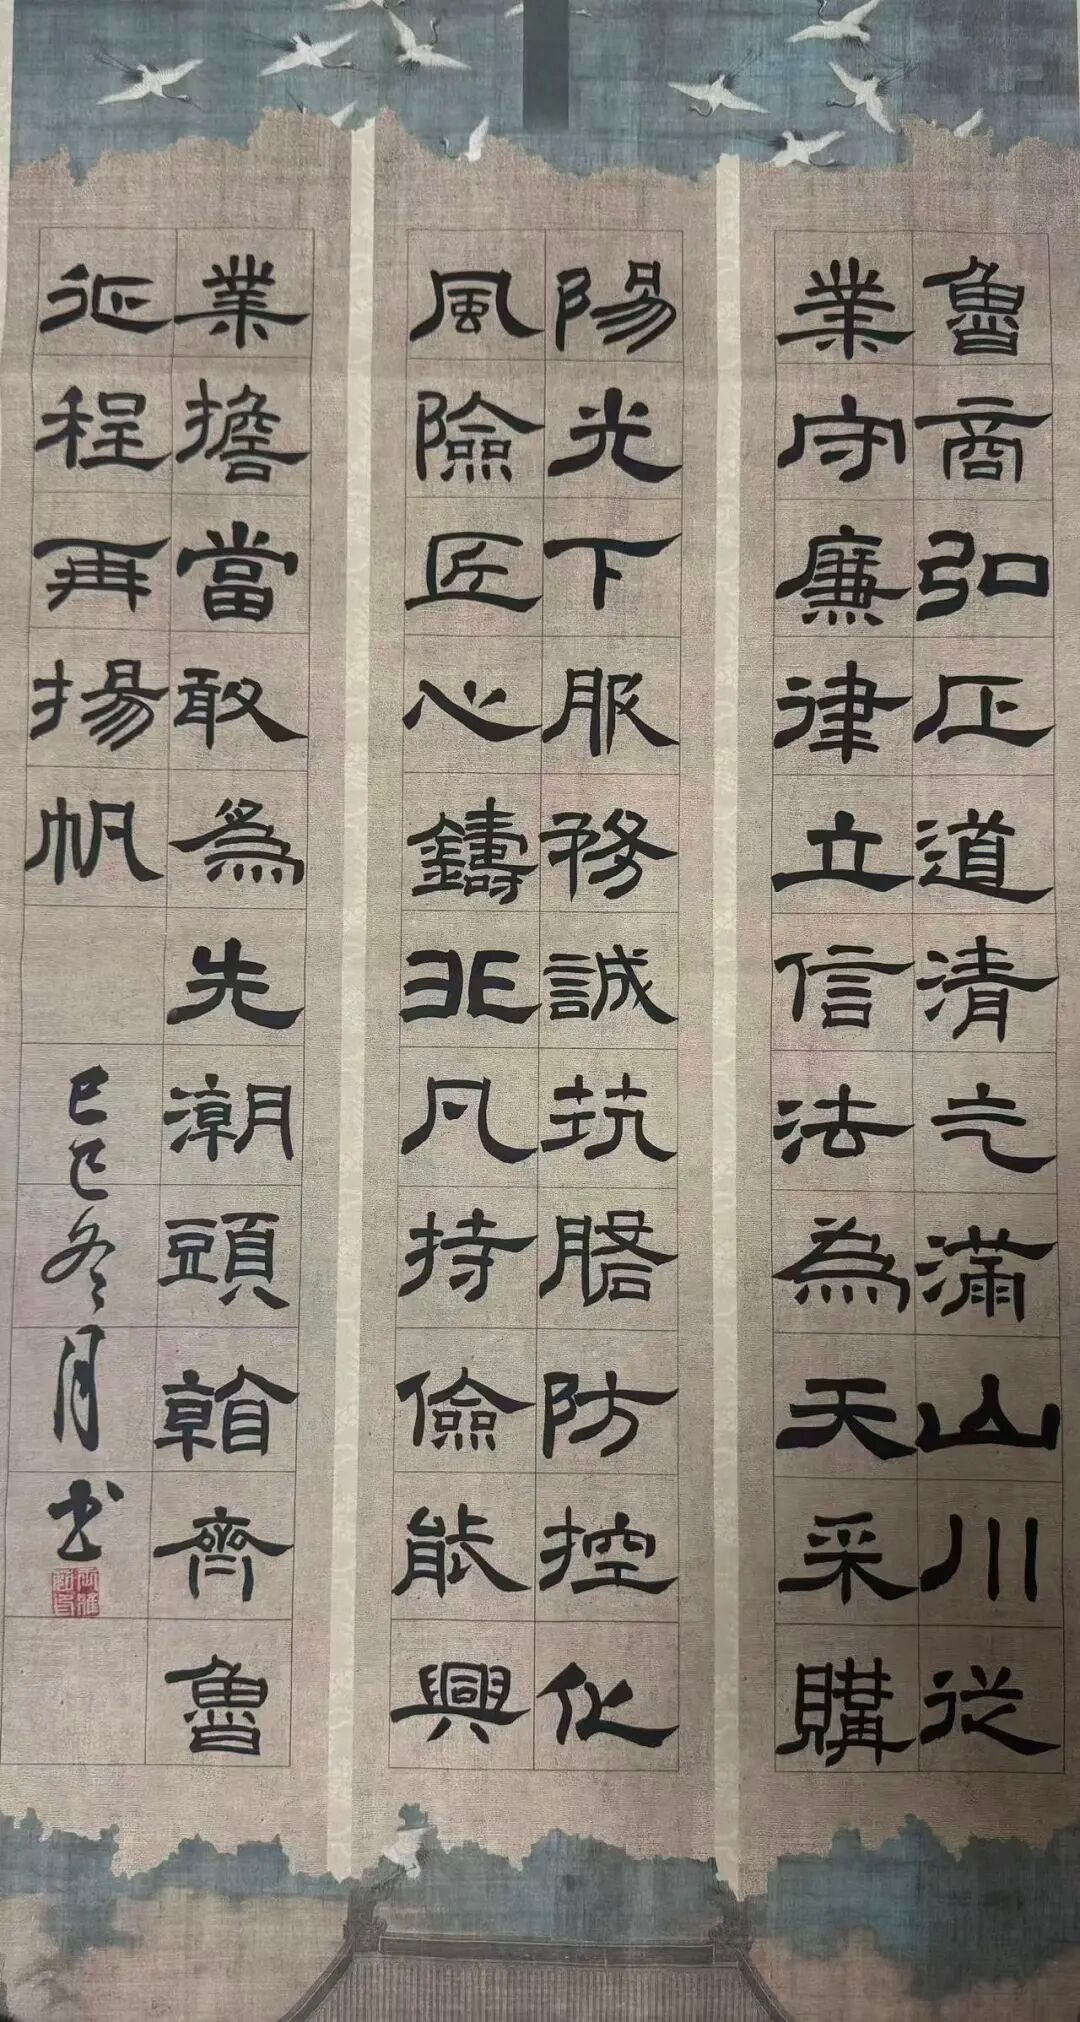 魯商弘正道清气滿山川從
業守廉律立信法為天采購
陽光下服務誠防控化
風險匠心鑄非凡持儉能興
業擔當敢為先潮頭齊魯
征程再揚帆
己巳冬月书